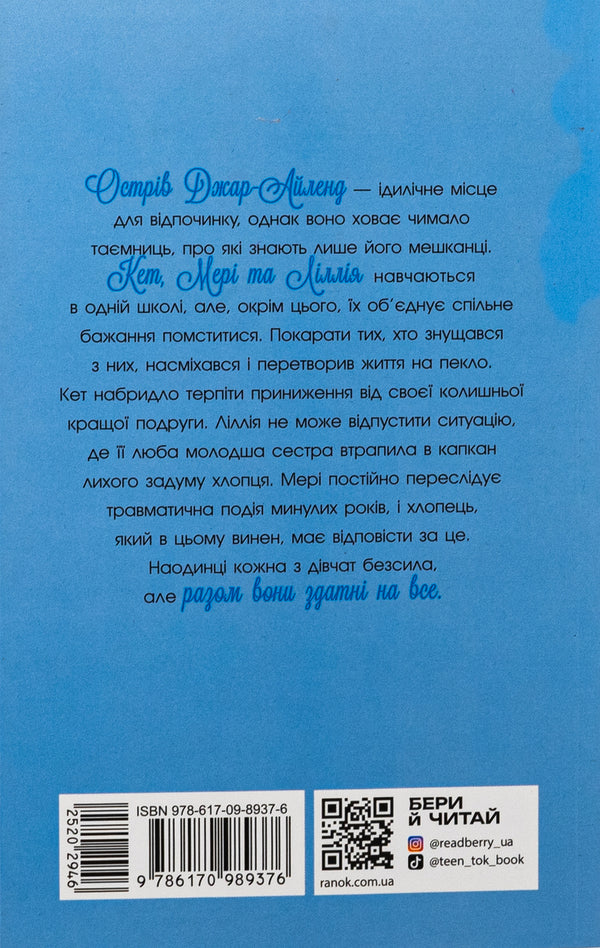 Острів Джар-Айленд — ідилічне місце
для відпочинку, однак воно ховає чимало
таємниць, про які знають лише його мешканці.
Кет, Мері та Ліллія навчаються
в одній школі, але, окрім цього, їх об’єднує спільне
бажання помститися. Покарати тих, хто знущався
з них, насміхався і перетворив життя на пекло.
Кет набридло терпіти приниження від своєї колишньої
кращої подруги. Ліллія не може відпустити ситуацію,
де її люба молодша сестра втрапила в капкан
лихого задуму хлопця. Мері постійно переслідує
травматична подія минулих років, і хлопець,
який в цьому винен, має відповісти за це.
Наодинці кожна з дівчат безсила,
але разом вони здатні на все.
2520 2946
ISBN 978-617-09-8937-6
9 786170 989376
ranok.com.ua
БЕРИ
Й ЧИТАЙ
@readberry_ua
@teen_tok_book